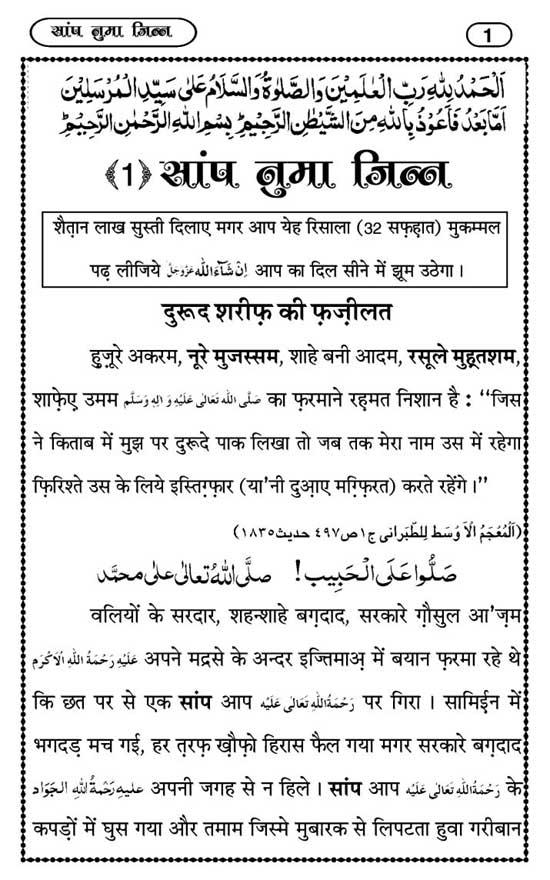 सांप नुमा जिन्न
1
اَلْحَمْدُ لِلّٰهِ رَبِّ الْعٰلَمِيْنَ وَالصَّلٰوةُ وَالسَّلَامُ عَلٰى سَيِّدِ الْمُرْسَلِيْنَ
اَمَّا بَعْدُ فَاَعُوْذُ بِاللّٰهِ مِنَ الشَّيْطٰنِ الرَّجِيْمِ ؕ بِسْمِ اللّٰهِ الرَّحْمٰنِ الرَّحِيْمِ ؕ
﴾1﴿ सांप नुमा जिन्न
शैत़ान लाख सुस्ती दिलाए मगर आप येह रिसाला (32 सफ़ह़ात) मुकम्मल
पढ़ लीजिये اِنْ شَآءَاللّٰه عَزَّوَجَلَّ आप का दिल सीने में झूम उठेगा ।
दुरूद शरीफ़ की फ़ज़ीलत
हुज़ूरे अकरम, नूरे मुजस्सम, शाहे बनी आदम, रसूले मुह़्तशम,
शाफ़ेए उमम صَلَّى اللّٰهُ تَعَالٰى عَلَيْهِ وَاٰلِهٖ وَسَلَّم का फ़रमाने रह़मत निशान है : ‘‘जिस
ने किताब में मुझ पर दुरूदे पाक लिखा तो जब तक मेरा नाम उस में रहेगा
फ़िरिश्ते उस के लिये इस्तिग़्फ़ार (या'नी दुआ़ए मग़्फ़िरत) करते रहेंगे ।’’
(اَلْمُعْجَمُ الْاَوْسَط لِلطَّبَرَانِی ج١ص٤٩٧ حدیث١٨٣٥)
صَلُّوْا عَلَى الْحَبِيْب! صلَّى اللّٰهُ تعالٰى علٰى محمَّد
वलियों के सरदार, शहन्शाहे बग़दाद, सरकारे ग़ौसुल आ'ज़म
عَلَيْهِ رَحْمَةُ اللّٰهِ الْاَكْرَم अपने मद्रसे के अन्दर इज्तिमाअ़ में बयान फ़रमा रहे थे
कि छत पर से एक सांप आप رَحْمَةُ اللّٰهِ تَعَالٰى عَلَيْه पर गिरा । सामिई़न में
भगदड़ मच गई, हर त़रफ़ ख़ौफ़ो हिरास फैल गया मगर सरकारे बग़दाद
عليهِ رَحْمَةُ اللّٰهِ الْجَوَاد अपनी जगह से न हिले । सांप आप رَحْمَةُ اللّٰهِ تَعَالٰى عَلَيْه के
कपड़ों में घुस गया और तमाम जिस्मे मुबारक से लिपटता हुवा गरीबान